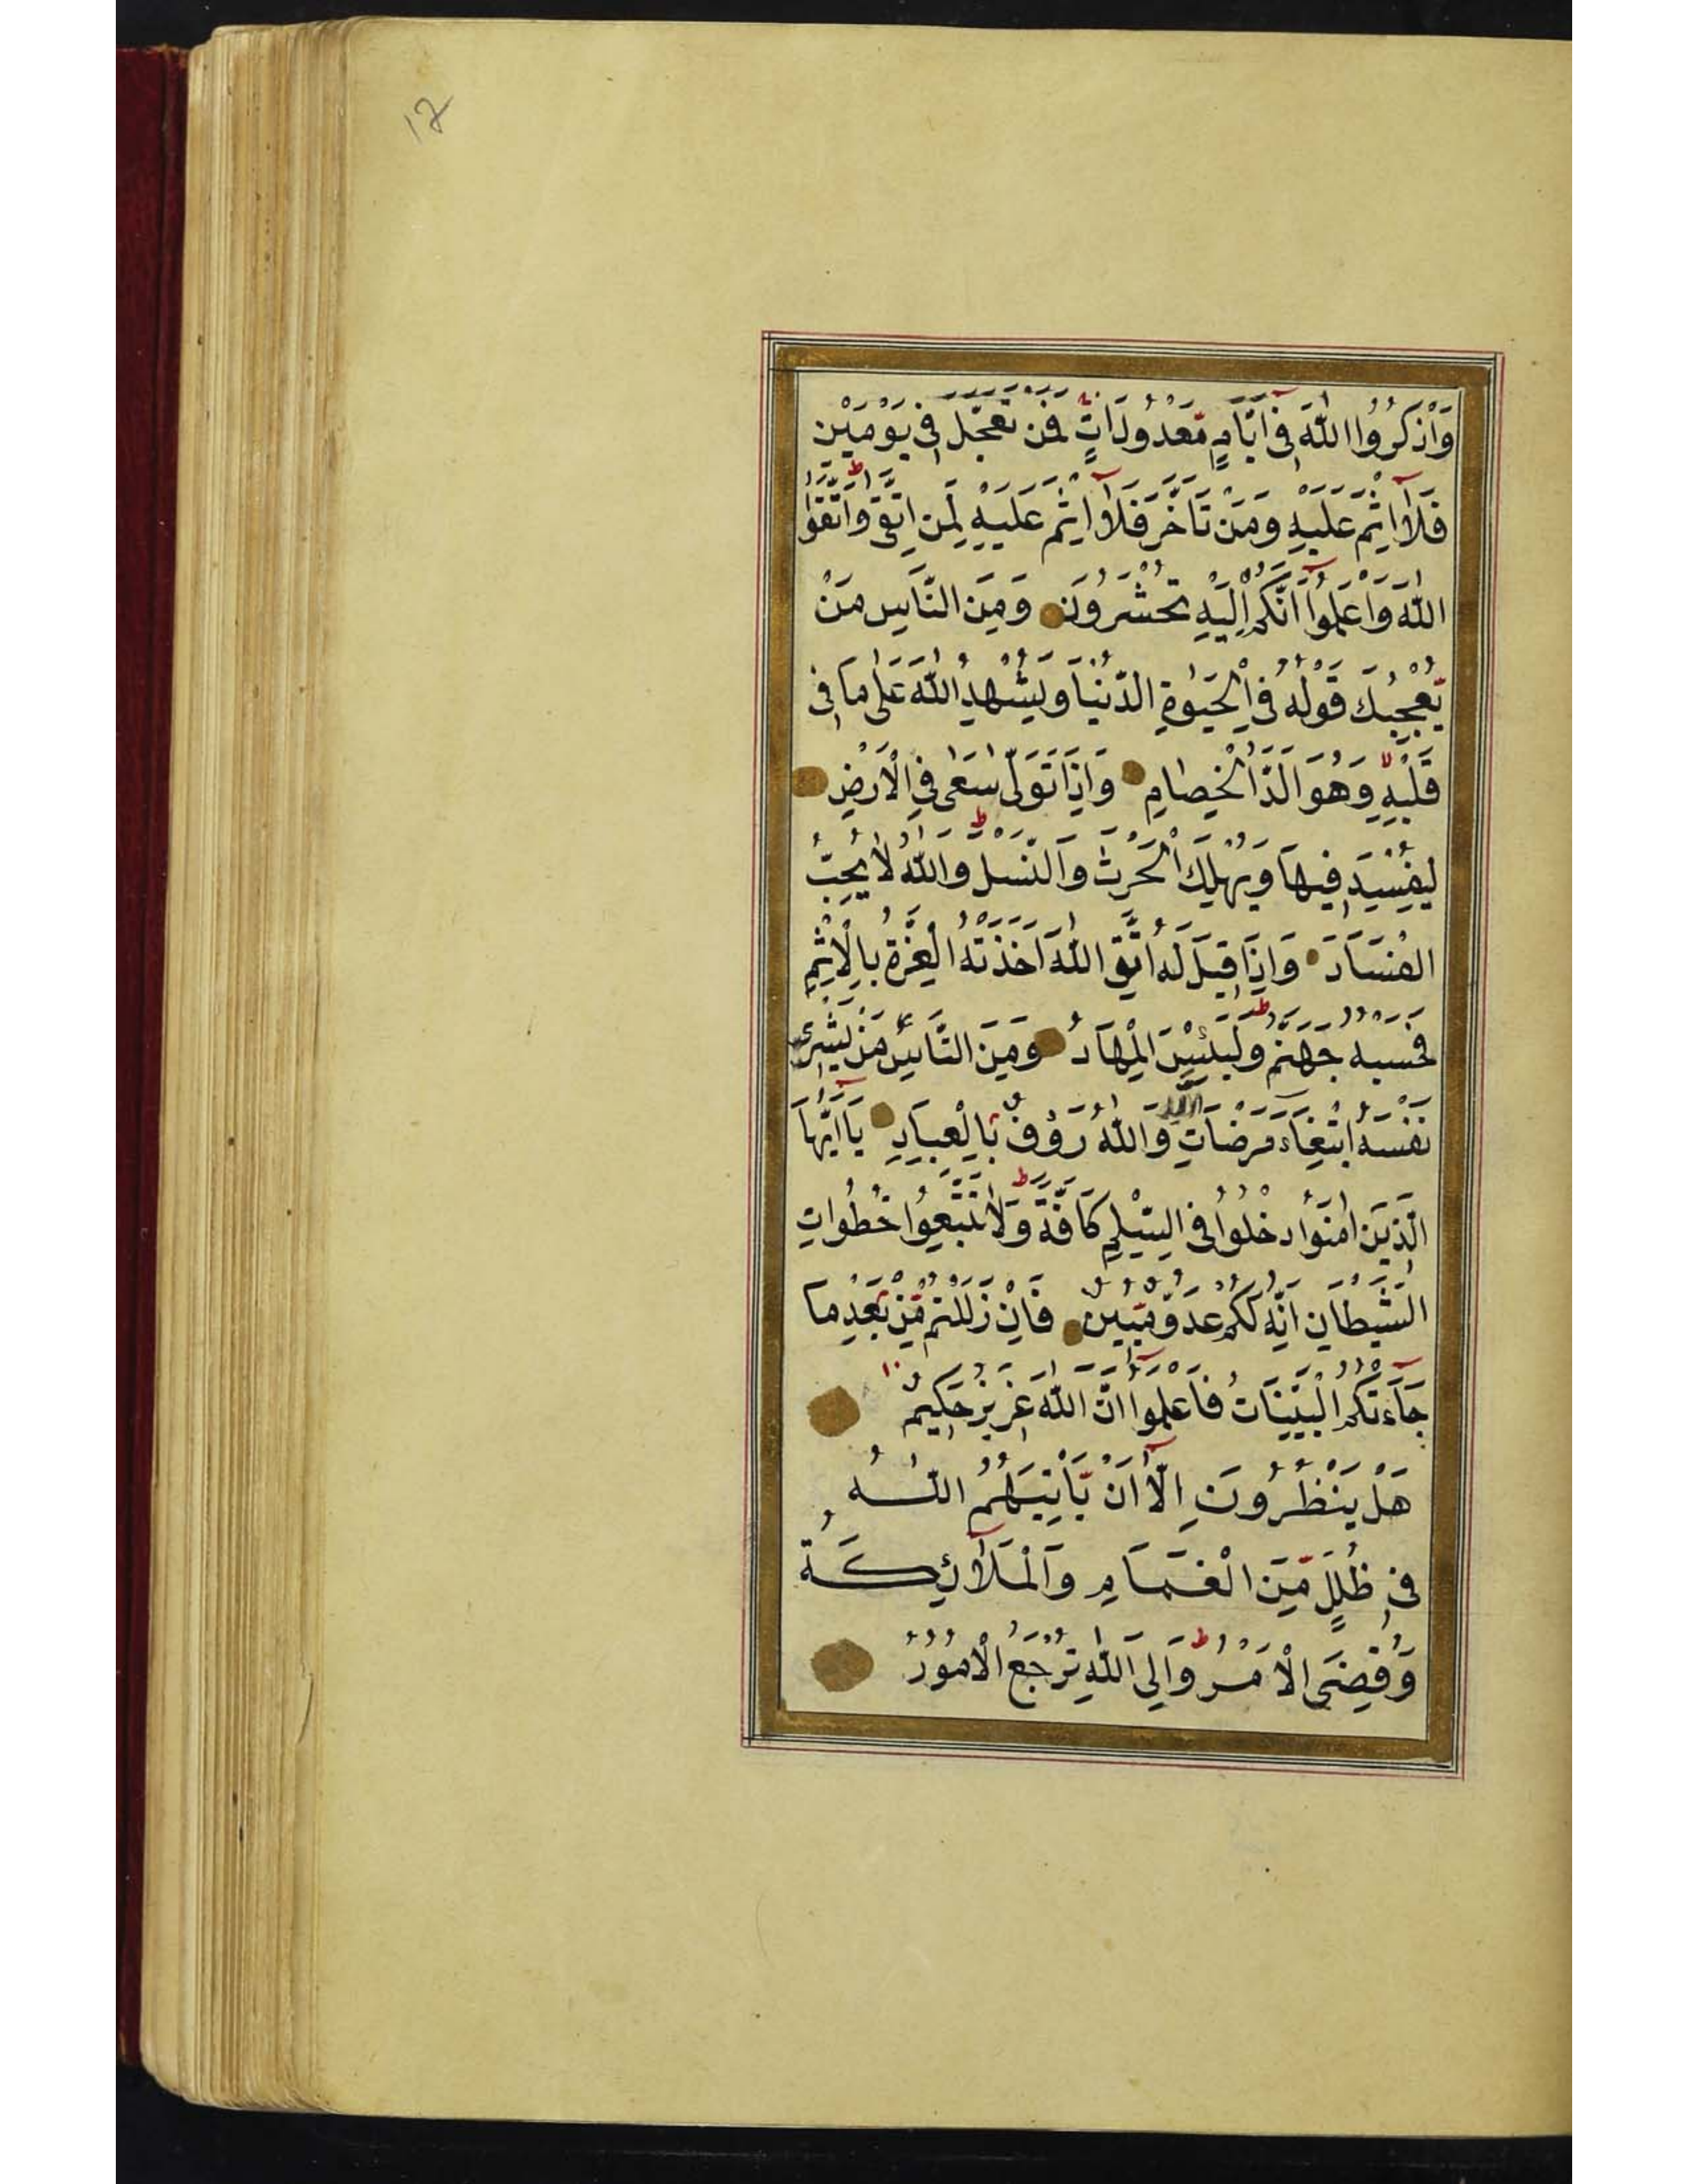 17
وَاذْكُرُوا اللّٰهَ فِى اَيَّامٍ مَّعْدُودَاتٍ فَمَنْ تَعَجَّلَ فِى يَوْمَيْنِ
فَلَآ اِثْمَ عَلَيْهِ وَمَنْ تَاَخَّرَ فَلَآ اِثْمَ عَلَيْهِ لِمَنِ اتَّقٰى وَاتَّقُوا
اللّٰهَ وَاعْلَمُوٓا اَنَّكُمْ اِلَيْهِ تُحْشَرُونَ وَمِنَ النَّاسِ مَنْ
يُّعْجِبُكَ قَوْلُهُ فِى الْحَيٰوةِ الدُّنْيَا وَيُشْهِدُ اللّٰهَ عَلٰى مَا فِى
قَلْبِهِ وَهُوَ اَلَدُّ الْخِصَامِ وَاِذَا تَوَلّٰى سَعٰى فِى الْاَرْضِ
لِيُفْسِدَ فِيهَا وَيُهْلِكَ الْحَرْثَ وَالنَّسْلَ وَاللّٰهُ لَا يُحِبُّ
الْفَسَادَ وَاِذَا قِيلَ لَهُ اتَّقِ اللّٰهَ اَخَذَتْهُ الْعِزَّةُ بِالْاِثْمِ
فَحَسْبُهُ جَهَنَّمُ وَلَبِئْسَ الْمِهَادُ وَمِنَ النَّاسِ مَنْ يَّشْرِى
نَفْسَهُ ابْتِغَاءَ مَرْضَاتِ اللّٰهِ وَاللّٰهُ رَؤُفٌ بِالْعِبَادِ يَآ اَيُّهَا
الَّذِينَ اٰمَنُوا ادْخُلُوا فِى السِّلْمِ كَافَّةً وَلَا تَتَّبِعُوا خُطُوَاتِ
الشَّيْطَانِ اِنَّهُ لَكُمْ عَدُوٌّ مُّبِينٌ فَاِنْ زَلَلْتُمْ مِّنْ بَعْدِ مَا
جَآءَتْكُمُ الْبَيِّنَاتُ فَاعْلَمُوٓا اَنَّ اللّٰهَ عَزِيزٌ حَكِيمٌ
هَلْ يَنْظُرُونَ اِلَّآ اَنْ يَّاْتِيَهُمُ اللّٰهُ
فِى ظُلَلٍ مِّنَ الْغَمَامِ وَالْمَلَآئِكَةُ
وَقُضِىَ الْاَمْرُ وَاِلَى اللّٰهِ تُرْجَعُ الْاُمُورُ